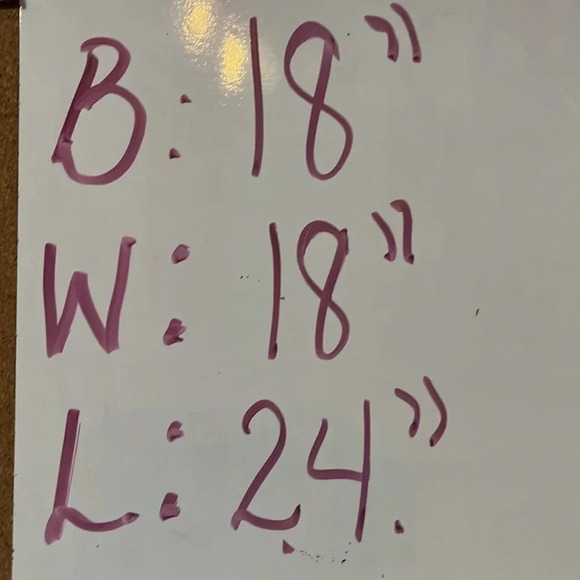 B: 18"
W: 18"
L: 24."